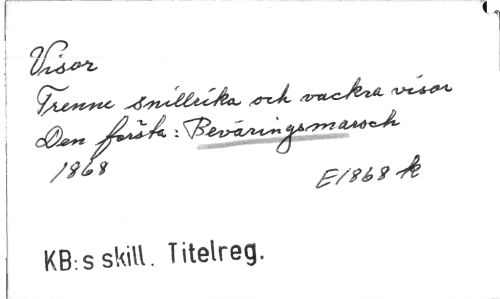 Visor
Trenne snillrika och vackra visor
Den första: Beväringsmarsch
1868 E1868 k
KB:s skill. Titelreg.